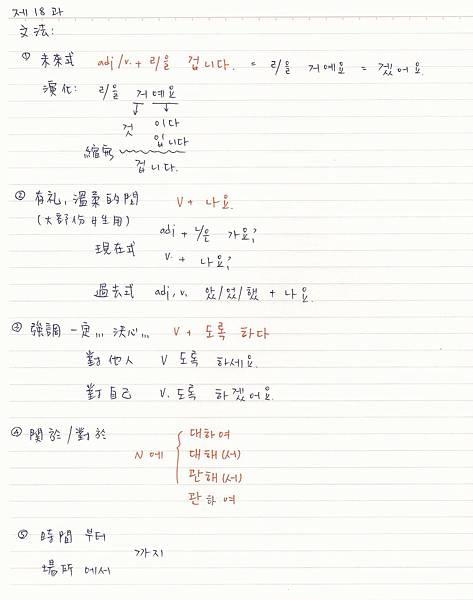 제 18 과
文法:
① 未來式 adj/v. + ㄹ/을 겁니다. = ㄹ/을 거예요 = 겠어요.
演化: ㄹ/을 거예요
것 이다
입니다
縮寫
겁니다.
② 有礼, 溫柔的問 V + 나요.
(大部份女生用) adj + ㄴ/은 가요?
現在式 v. + 나요?
過去式 adj, v. 았/었/했 + 나요.
③ 強調一定… 決心… V + 도록 하다
對他人 V 도록 하세요.
對自己 V. 도록 하겠어요.
④ 關於/對於
N 에
대하여
대해(서)
관해(서)
관하여
⑤ 時間 부터
까지
場所 에서